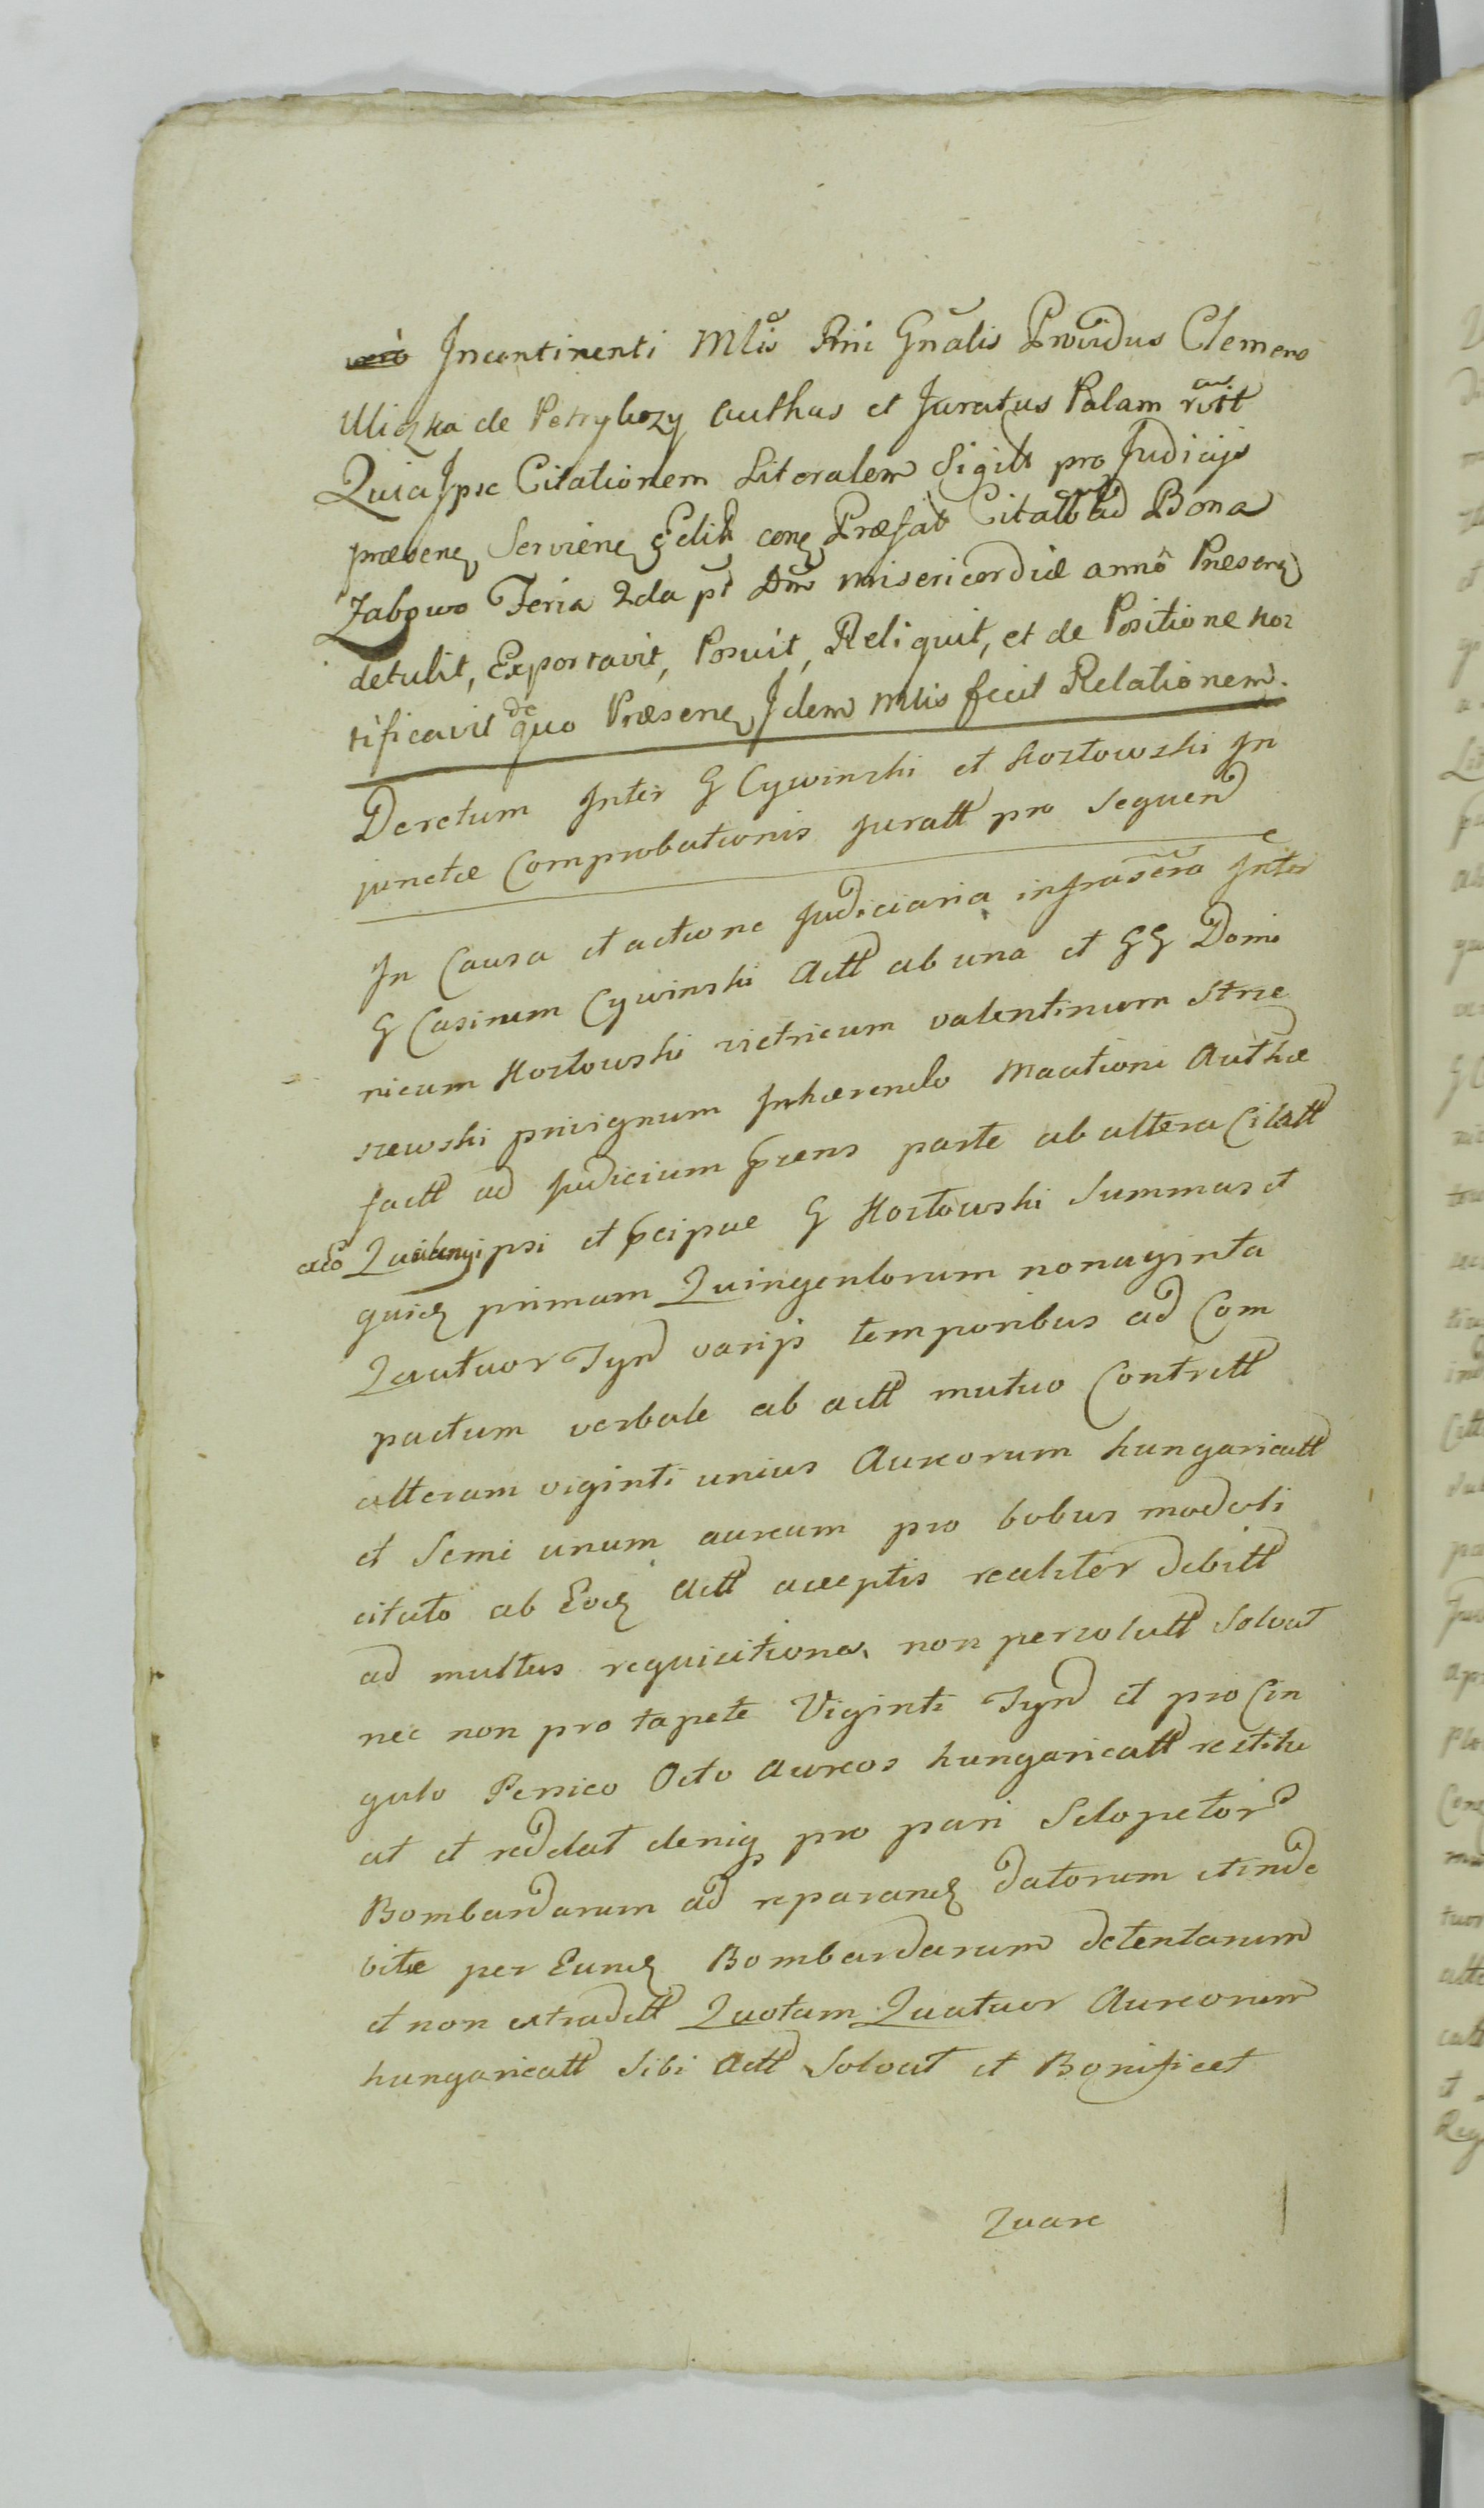 Incontinenti Mlis Rni Gnalis Providus Clemens
Uliczka de Petrybozy authus et Juratus Palam
Quia Ipse Citationem Literalem Sigill pro Judicijs
præsen Servien con Præfat Citatt ad Bona
Zabowo Feria 2da pt Dnm misericordiæ annô Præsen
detulit, Exportavit, Posuit, Reliquit, et de Positione not
tificavit de quo Præsen Idem Mlis fecit Relationem.
Decretum Inter G Cywinski et Kozłowski In
junctæ Comprobationis juratt pro Sequend
In Causa et actione Judiciaria infrascra Inter
G Casirum Cywinski Actt ab una et GG Domi
nicum Kozłowski victricum valentinum Strze
szewski privignum Inhærendo Mactioni Authæ
factt ad Judicium parte ab altera Citatt
ipsi et G Kozłowski Summas et
quid primam Quingentorum nonaginta
Quatuor Tyn varijs temporibus ad Com
pactum verbale ab actt mutuo Contrctt
alteram viginti unius Aureorum hungaricatt
et Semi unum aureum pro bobus
citato ab Eod Actt acceptis realiter debitt
ad multas requisitiones non persolutt Solvat
nec non pro tapete Viginti Tyn et pro Cin
gulo Persico Octo Aureos hungaricatt restitu
at et reddat deniq pro pari Sclopetor
Bombardarum ad reparand datorum et inde
bite per Eund Bombardarum detentarum
et non extraditt Quotam Quatuor Aureorum
hungaricatt Sibi Actt Solvat et Bonificet
Quare